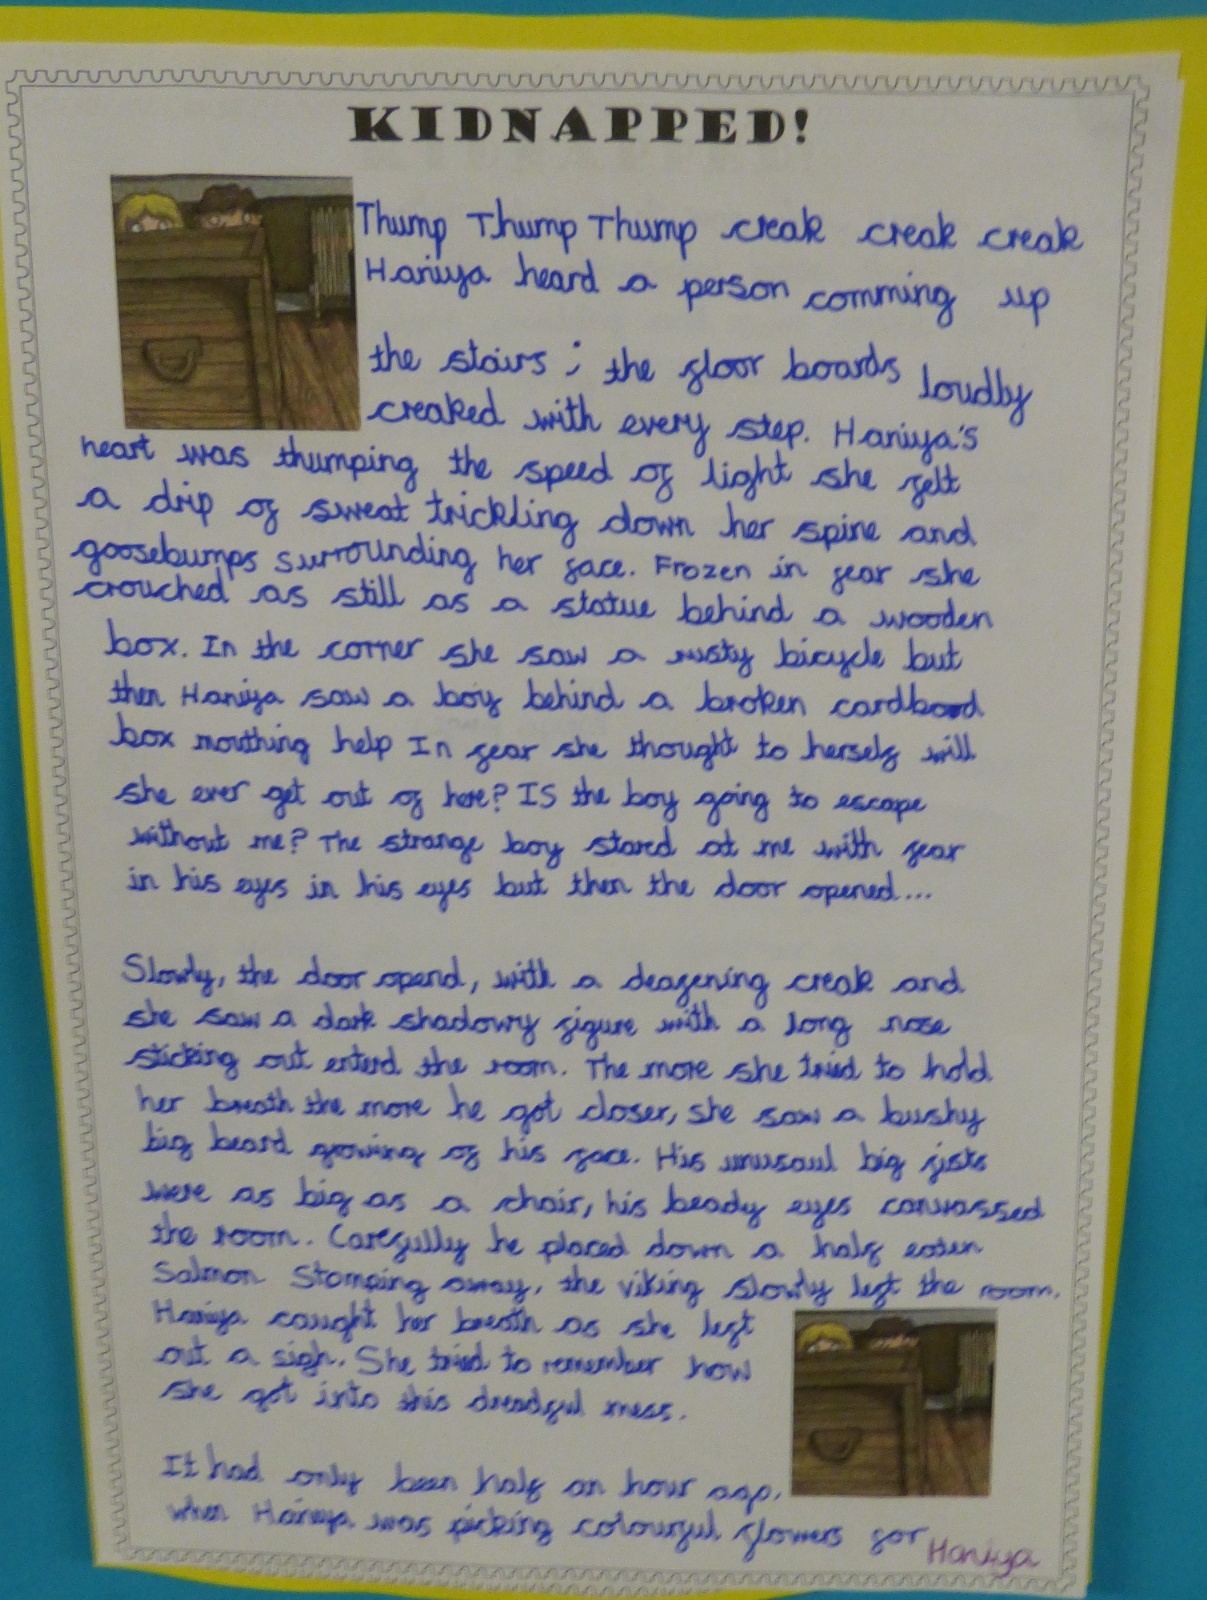 KIDNAPPED!
Thump Thump Thump creak creak creak
Haniya heard a person comming up
the stairs ; the floor boards loudly
creaked with every step. Haniya's
heart was thumping the speed of light she felt
a drip of sweat trickling down her spine and
goosebumps surrounding her face. Frozen in fear she
crouched as still as a statue behind a wooden
box. In the corner she saw a rusty bicycle but
then Haniya saw a boy behind a broken cardbord
box mouthing help In fear she thought to herself will
she ever get out of here? IS the boy going to escape
without me? The strange boy stared at me with fear
in his eyes in his eyes but then the door opened...
Slowly, the door opend, with a deafening creak and
she saw a dark shadowy figure with a long nose
sticking out enterd the room. The more she tried to hold
her breath the more he got closer, she saw a bushy
big beard growing of his face. His unusaul big fists
were as big as a chair, his beady eyes canvassed
the room. Carefully he placed down a half eaten
Salmon Stomping away, the viking slowly left the room.
Haniya caught her breath as she left
out a sigh. She tried to remember how
she got into this dreadful mess.
It had only been half an hour
when Haniya was picking colourful flowers for
Haniya